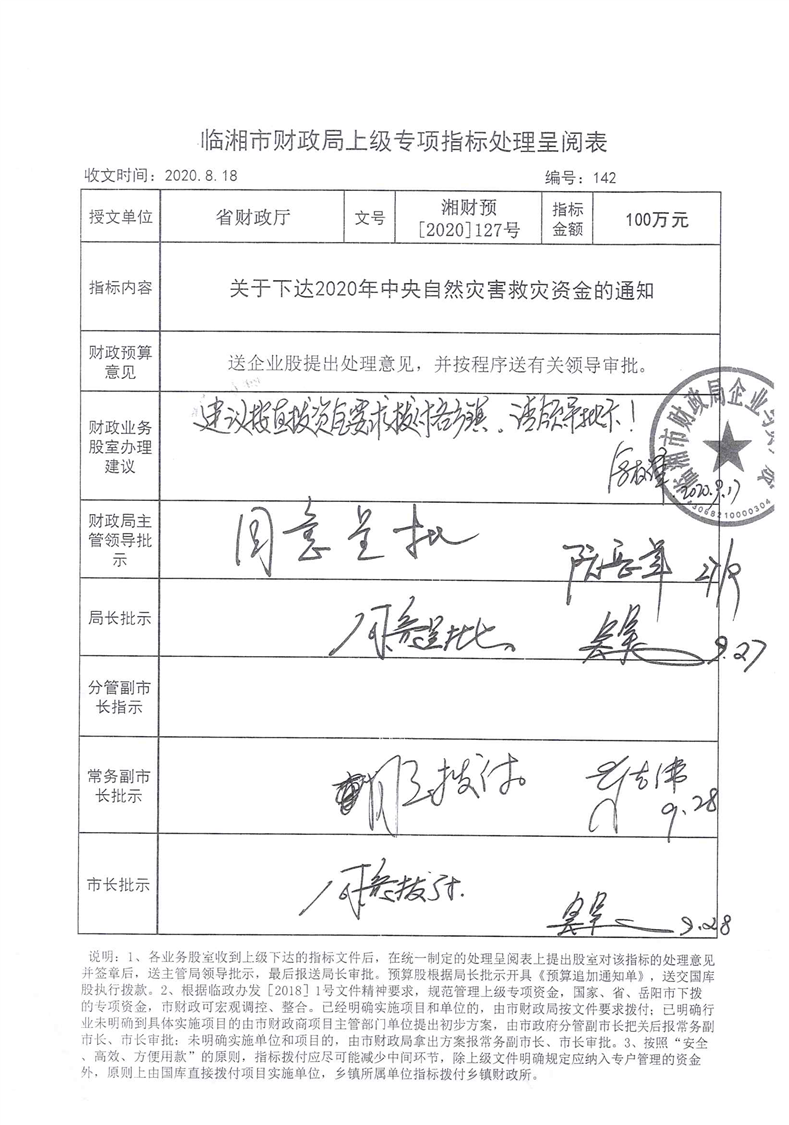 临湘市财政局上级专项指标处理呈阅表
收文时间：2020.8.18 编号：142
授文单位 省财政厅 文号 湘财预[2020]127号 指标金额 100万元
指标内容 关于下达2020年中央自然灾害救灾资金的通知
财政预算意见 送企业股提出处理意见，并按程序送有关领导审批。
财政业务股室办理建议 建议按直拨资金要求拨付各乡镇。请领导批示！
2020.9.17
临湘市财政局企业
43068210000304
财政局主管领导批示 同意呈批
局长批示 同意呈批。 9.27
分管副市长指示
常务副市长批示 同意拨付。 9.28
市长批示 同意拨付. 9.28
说明：1、各业务股室收到上级下达的指标文件后，在统一制定的处理呈阅表上提出股室对该指标的处理意见
并签章后，送主管局领导批示，最后报送局长审批。预算股根据局长批示开具《预算追加通知单》，送交国库
股执行拨款。2、根据临政办发［2018］1号文件精神要求，规范管理上级专项资金，国家、省、岳阳市下拨
的专项资金，市财政可宏观调控、整合。已经明确实施项目和单位的，由市财政局按文件要求拨付；已明确行
业未明确到具体实施项目的由市财政商项目主管部门单位提出初步方案，由市政府分管副市长把关后报常务副
市长、市长审批；未明确实施单位和项目的，由市财政局拿出方案报常务副市长、市长审批。3、按照“安全
、高效、方便用款”的原则，指标拨付应尽可能减少中间环节，除上级文件明确规定应纳入专户管理的资金
外，原则上由国库直接拨付项目实施单位，乡镇所属单位指标拨付乡镇财政所。